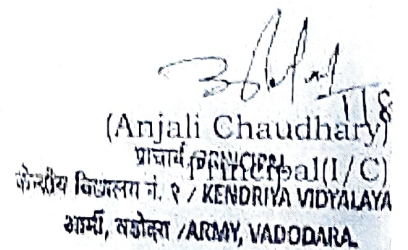 1/8
(Anjali Chaudhary)
Principal(I/C)
प्राचार्य /PRINCIPAL
केन्द्रीय विद्यालय नं. १ / KENDRIYA VIDYALAYA
आर्मी, वडोदरा /ARMY, VADODARA